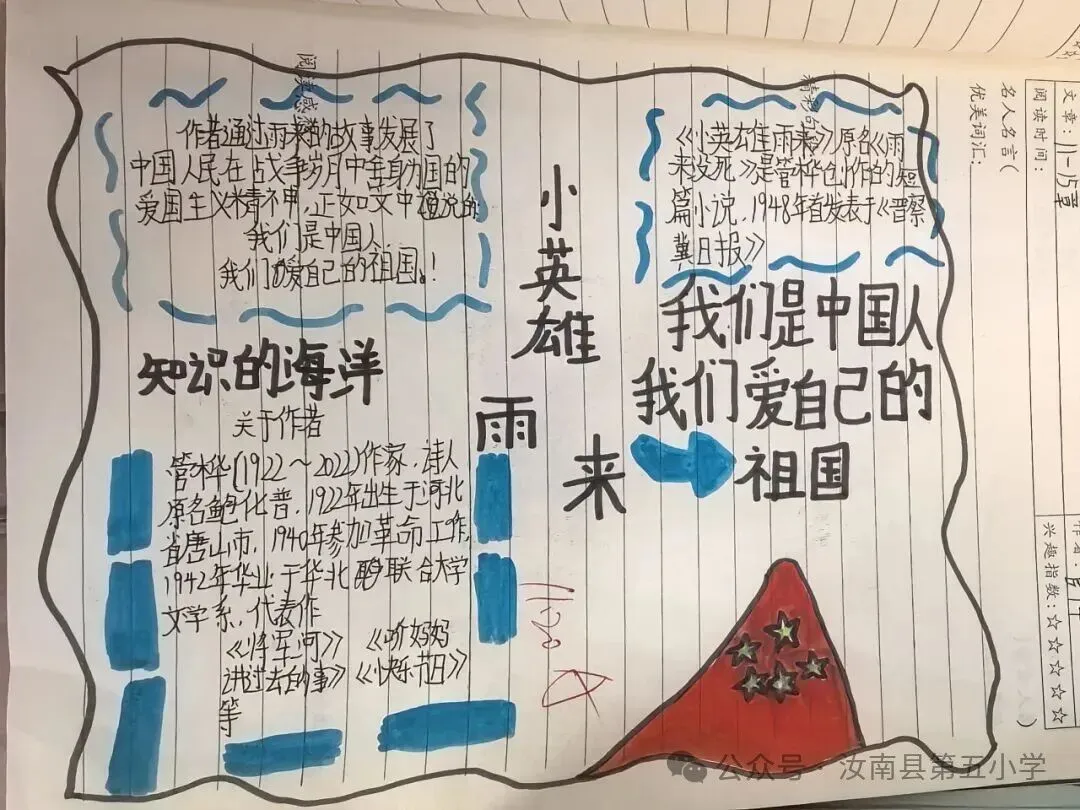 作者通过雨来的故事发展了
中国人民在战争岁月中奉身为国的
爱国主义精神,正如文中说的:
我们是中国人
我们爱自己的祖国。!
知识的海洋
关于作者
管桦(1922～2022)作家、诗人
原名鲍化普,1922年出生于河北
省唐山市,1940年参加革命工作,
1942年毕业于华北联合大学
文学系,代表作
《将军河》《听妈妈
讲过去的事》《快乐节日》
等
小英雄
雨
来
《小英雄雨来》原名《雨
来没死》是管桦创作的短
篇小说,1948年首发表于《晋察
冀日报》
我们是中国人
我们爱自己的
祖国
文章:11-15章
阅读时间:
名人名言(
)
优美词汇:
兴趣指数:☆☆☆☆☆
公众号·汝南县第五小学